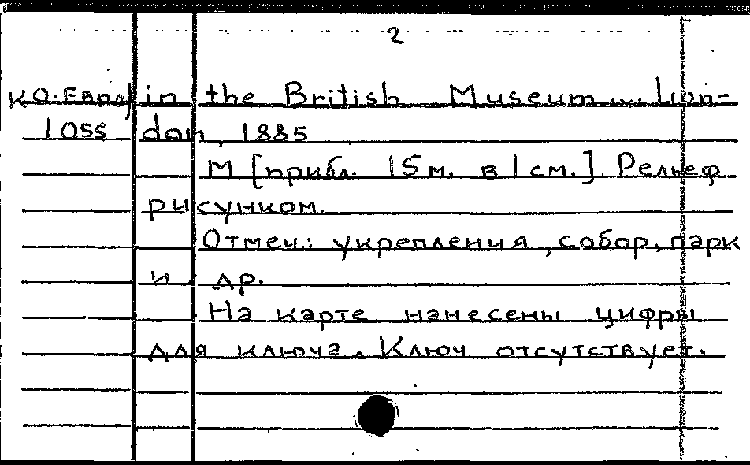 2
КО. Евро/ in the British Museum ... Lon-
1055 don, 1885
М [прибл. 15м. в 1 см.]. Рельеф
рисунком.
Отмеч: укрепления, собор, парк
и др.
На карте нанесены цифры
для ключа. Ключ отсутствует.